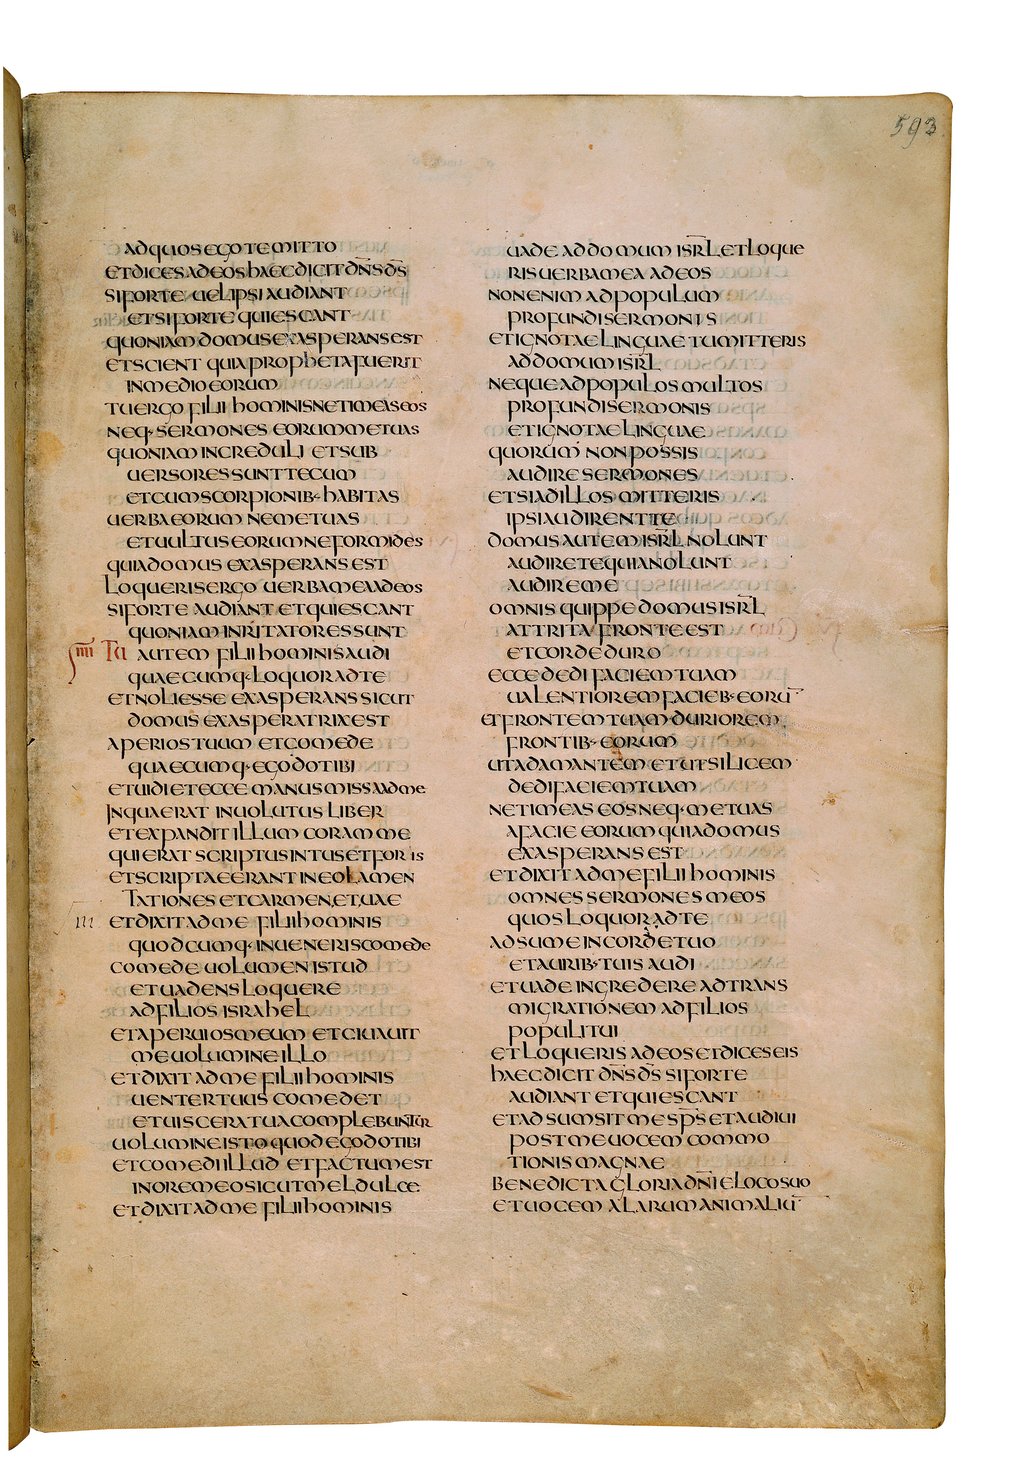 593
ad quos ego te mitto
et dices ad eos haec dicit dn̄s ds̄
si forte uel ipsi audiant
et si forte quiescant
quoniam domus exasperans est
et scient quia propheta fuerit
in medio eorum
tu ergo fili hominis ne timeas eos
neq· sermones eorum metuas
quoniam increduli et sub
uersores sunt tecum
et cum scorpionib· habitas
uerba eorum ne metuas
et uultus eorum ne formides
quia domus exasperans est
loqueris ergo uerba mea ad eos
si forte audiant et quiescant
quoniam inritatores sunt
IIII Tu autem fili hominis audi
quaecumq· loquor ad te
et noli esse exasperans sicut
domus exasperatrix est
aperi os tuum et comede
quaecumq· ego do tibi
et uidi et ecce manus missa ad me
in qua erat inuolutus liber
et expandit illum coram me
qui erat scriptus intus et foris
et scriptae erant in eo lamen
tationes et carmen et uae
III et dixit ad me fili hominis
quodcumq· inueneris comede
comede uolumen istud
et uadens loquere
ad filios israhel
et aperui os meum et ciuauit
me uolumine illo
et dixit ad me fili hominis
uenter tuus comedet
et uiscera tua complebuntur
uolumine isto quod ego do tibi
et comedi illud et factum est
in ore meo sicut mel dulce
et dixit ad me fili hominis
uade ad domum isrl̄ et loque
ris uerba mea ad eos
non enim ad populum
profundi sermonis
et ignotae linguae tu mitteris
ad domum isrl̄
neque ad populos multos
profundi sermonis
et ignotae linguae
quorum non possis
audire sermones
et si ad illos mitteris
ipsi audirent te
domus autem isrl̄ nolunt
audire te quia nolunt
audire me
omnis quippe domus isrl̄
attrita fronte est
et corde duro
ecce dedi faciem tuam
ualentiorem facieb· eorū
et frontem tuam duriorem
frontib· eorum
ut adamantem et ut silicem
dedi faciem tuam
ne timeas eos neq· metuas
a facie eorum quia domus
exasperans est
et dixit ad me fili hominis
omnes sermones meos
quos loquor ad te
adsume in corde tuo
et aurib· tuis audi
et uade ingredere ad trans
migrationem ad filios
populi tui
et loqueris ad eos et dices eis
haec dicit dn̄s ds̄ si forte
audiant et quiescant
et adsumsit me sps̄ et audiui
post me uocem commo
tionis magnae
benedicta gloria dn̄i e loco suo
et uocem alarum animaliū